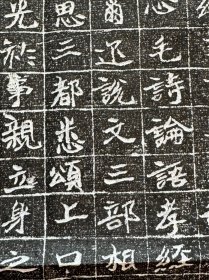 心毛詩論語孝經
爾說文三部相
思三都悉頌上口
光於事親立身之